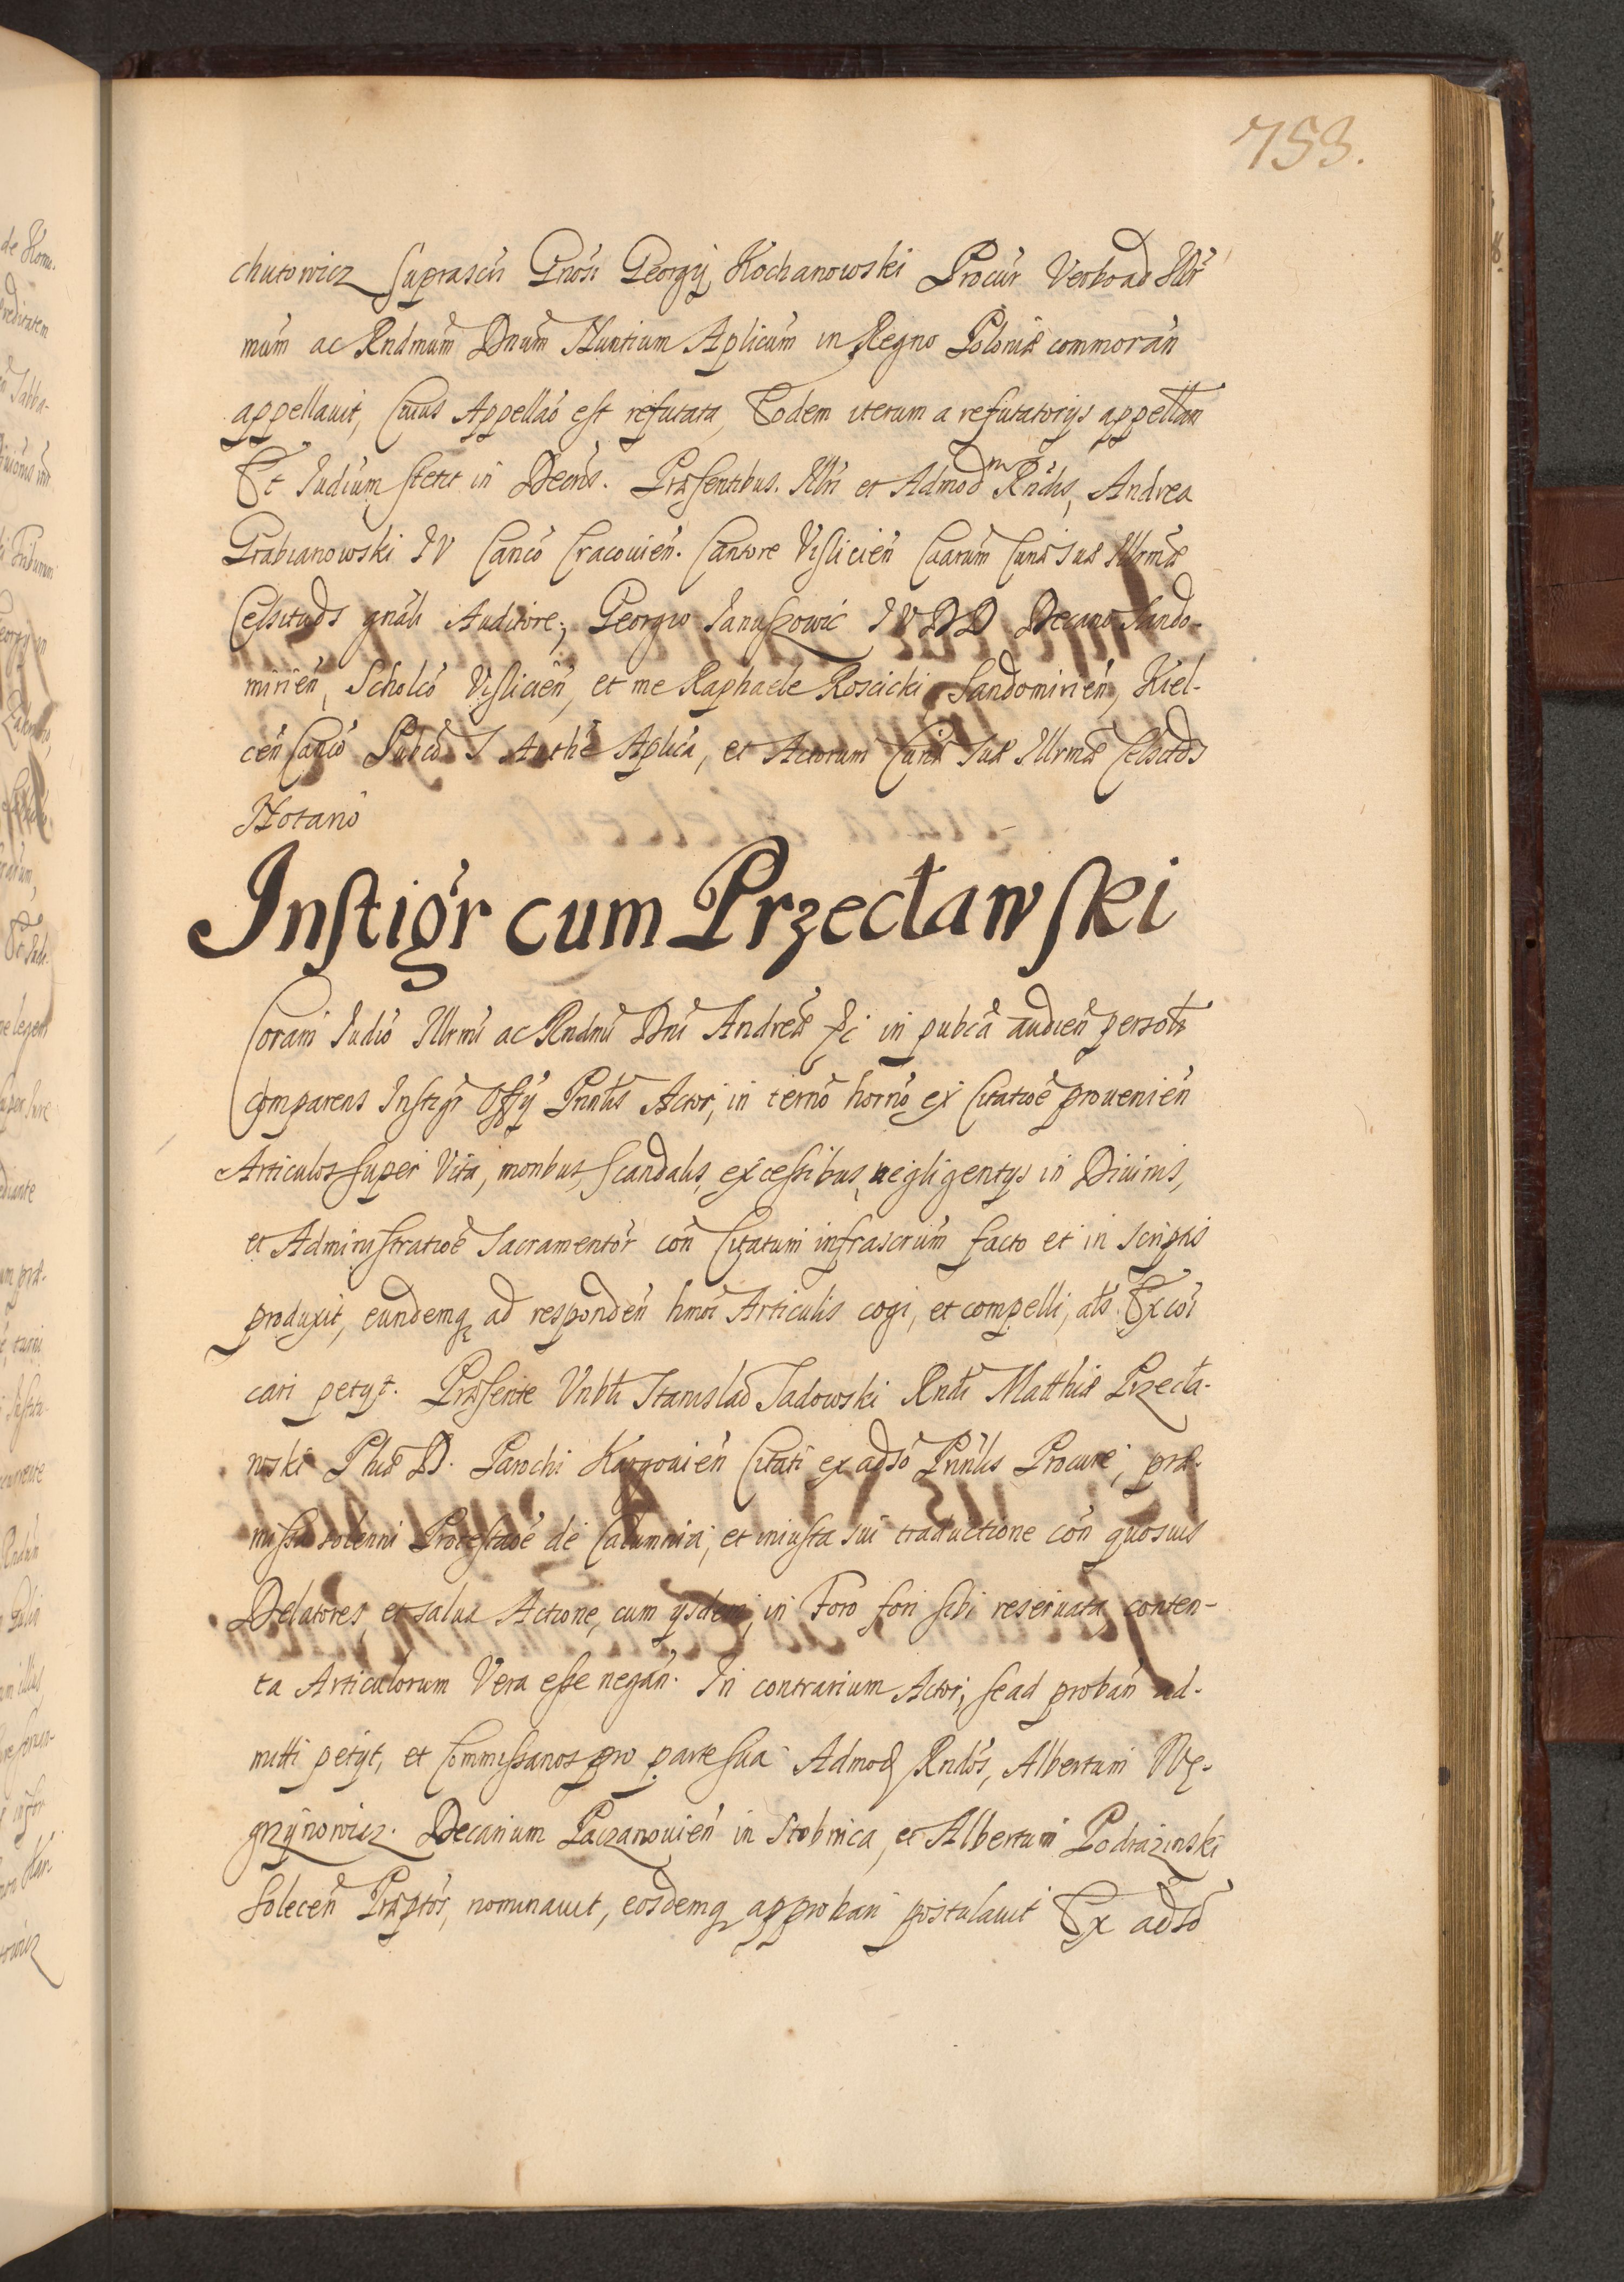 753.
chutowicz suprascri Gnosi Georgij Kochanowski Procur Verbo ad Illr
mum ac Rndmum Dnum Nuntium Aplicum in Regno Poloniæ commoran
appellavit, Cuius Appellao est refutata, Eodem iterum a refutatorijs appellan
Et Iudium stetit in Decris. Præsentibus. Illri et Admod m Rndis, Andrea
Grabianowski IV Canco Cracouien. Cantore Vislicien Cuarum Curiæ Suæ Illrmæ
Celsituds gnali Auditore; Georgio Januszowic IVDD Decano Sando-
mirien, Scholco Vislicien, et me Raphaele Roscicki, Sandomirien, Kiel-
cen Canco Pubco S Authe Aplica, et Actorum Curiæ Suæ Illrmæ Celsitds
Notario
Instigr cum Przecławski
Coram Iudio Illrmi ac Rndmi Dni Andreæ &c in pubca audien personlr
comparens Instigr Offij Prinlis Actor, in termo horno ex Citatioe prouenien
Articulos super Vita, moribus, scandalis, excessibus, negligentijs in Diuinis,
et Administratioe Sacramentor con Citatum infrascrium facto et in scriptis
produxit, eundemq ad responden hmoi Articulis cogi, et compelli, als Excoi
cari petijt. Præsente Vnbli Stanislao Sadowski Rndi Matthiæ Przecła-
wski Phiæ D. Parochi Kargouien Citati ex adso Prinlis Procure, præ-
missa solenni Protestaoe de Calumnia, et iniusta sui traductione con quosuis
Delatores, et salua Actione, cum ijsdem, in Foro fori sibi reseruata conten-
ta Articulorum Vera esse negan. In contrarium Actor, se ad proban ad-
mitti petijt, et Commissarios pro parte sua Admod Rndos, Albertum Wę-
grzynowicz. Decanum Paczanouien in Stobnica, et Albertum Podrazinski
Solecen Præptos, nominauit, eosdemq approbari postulauit Ex adso